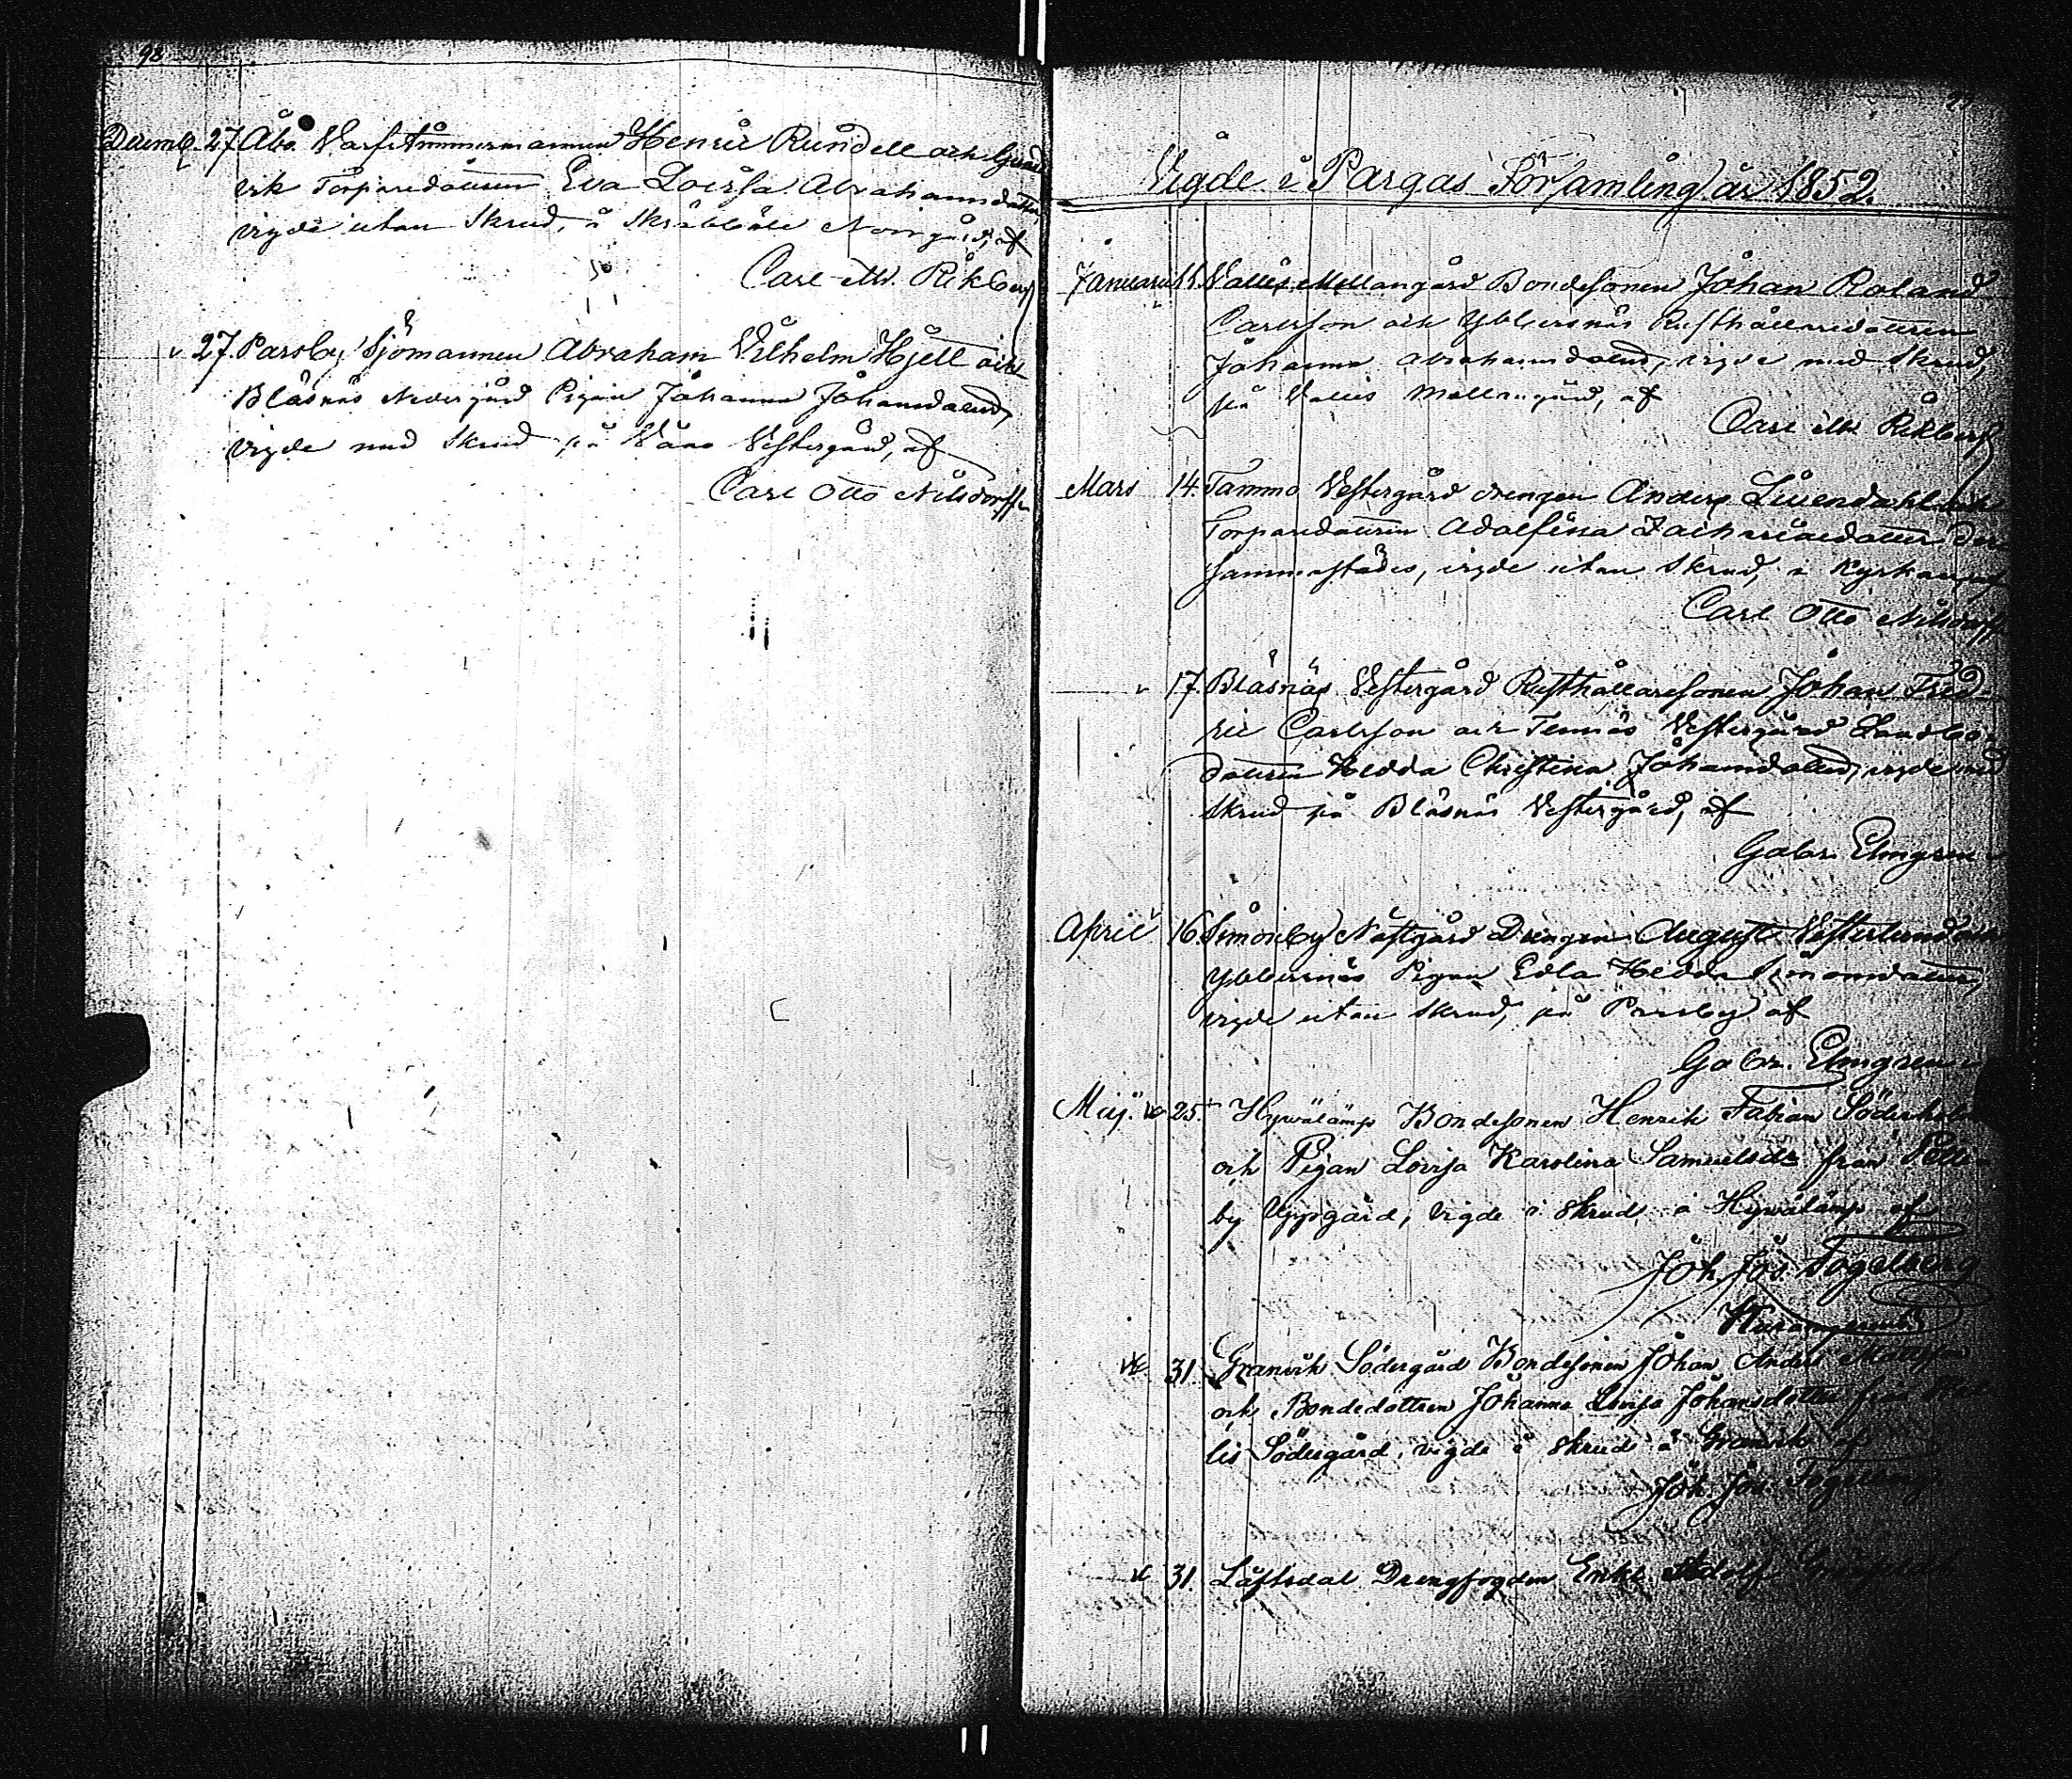 98
Decemb. 27. Åbo Varfstimmermannen Henric Rundell och Gran-
vik Torparedottren Eva Lovisa Abrahamsdotter
vigde utan Skrud, å Skräbböle Norrgård, af
Carl M. Rikberg
" 27. Parsby Sjömannen Abraham Vilhelm Hjell och
Bläsnäs Nedergård Pigan Johanna Johansdotter,
vigde med Skrud på Våno Vestergård, af
Carl Otto Nilsdorff
Vigde i Pargas Församling år 1852.
Januarii Vallis Mellangård Bondesonen Johan Roland
Carlsson och Ybbersnäs Rusthållaredottren
Johanna Abrahamsdotter, vigde med Skrud,
på Vallis Mellangård, af
Carl M. Rikberg
Mars 14. Tammo Vestergård drengen Anders Livendahl och
Torparedottren Adolfina Zachariaedotter der-
sammastädes, vigde utan Skrud, i Kyrkan, af
Carl Otto Nilsdorff
" 17. Bläsnäs Vestergård Rusthållaresonen Johan Fred-
ric Carlsson och Tennäs Vestergård Landbo-
dottren Hedda Christina Johansdotter, vigde med
Skrud på Bläsnäs Vestergård, af
Gabr. Elmgren
April 16. Simonby Nästgård Drengen August Vesterlund och
Ybbersnäs Pigan Edla Hedda Simonsdotter,
vigde utan Skrud, på Parsby af
Gabr. Elmgren
Maj. 25. Hyvälämp Bondesonen Henrik Fabian Söderholm
och Pigan Lovisa Karolina Samuelsdr från Pette-
by Uppgård, vigde i Skrud å Hyvälämp af
Joh. Jos. Fogelberg
31. Granvik Södergård Bondesonen Johan Anders Mattsson
och Bondedottren Johanna Lovisa Johansdotter från Val-
lis Södergård, vigde i Skrud å Granvik af
Joh. Jos. Fogelberg
31. Löfsdal Drengfogden Enkl. Adolf